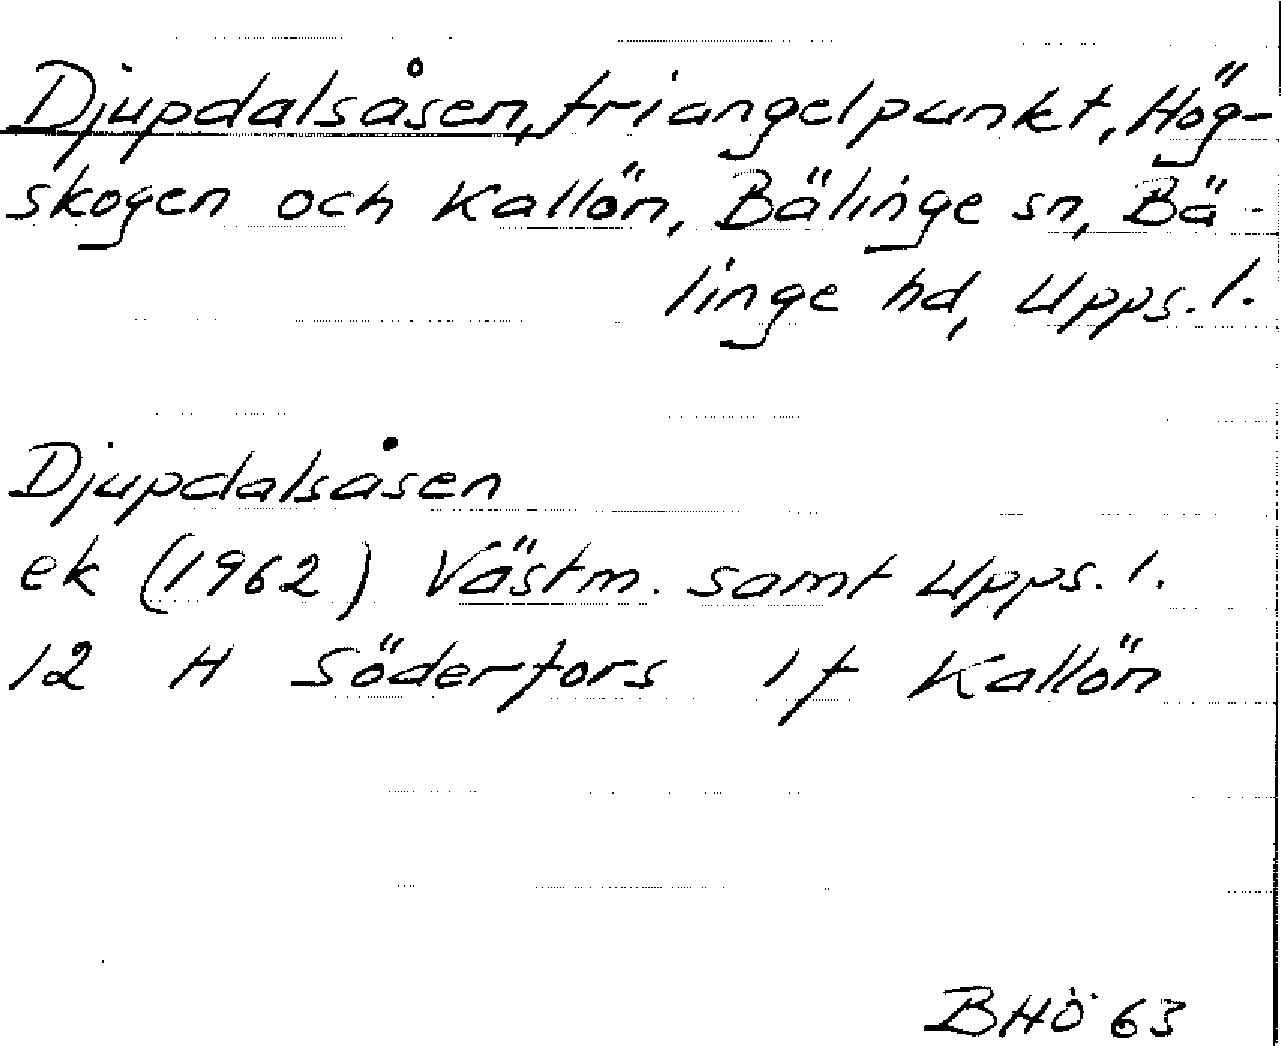 Djupdalsåsen, triangelpunkt, Hög-
skogen och Kallön, Bälinge sn, Bä-
linge hd, Upps. l.
Djupdalsåsen
ek (1962) Västm. samt Upps. l.
12 H Söderfors 1f Kallön
BHÖ 63